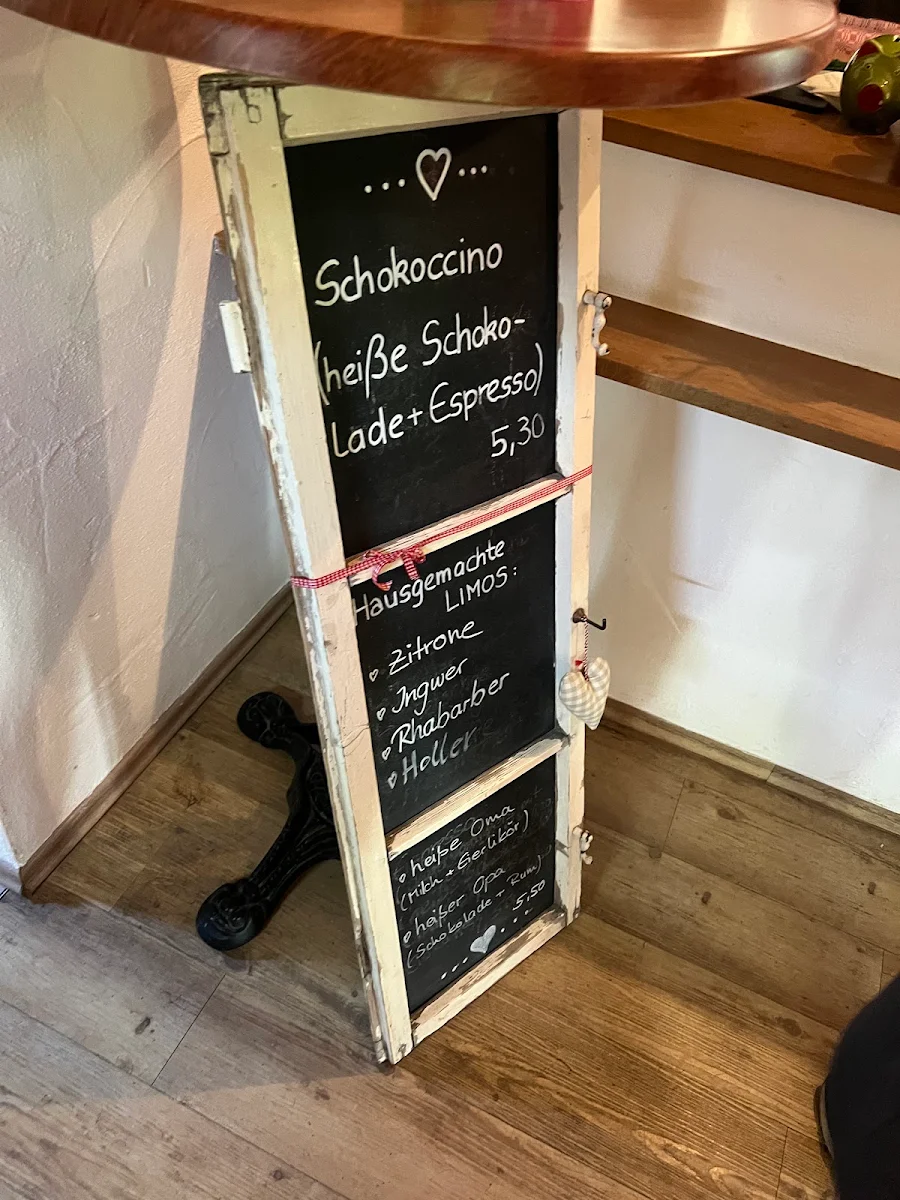 Schokoccino
(heiße Schoko-
lade + Espresso)
5,30
Hausgemachte
LIMOS:
Zitrone
Ingwer
Rhabarber
Holler
heiße Oma
(Milch + Eierlikör)
heißer Opa
(Schokolade + Rum)
5,50